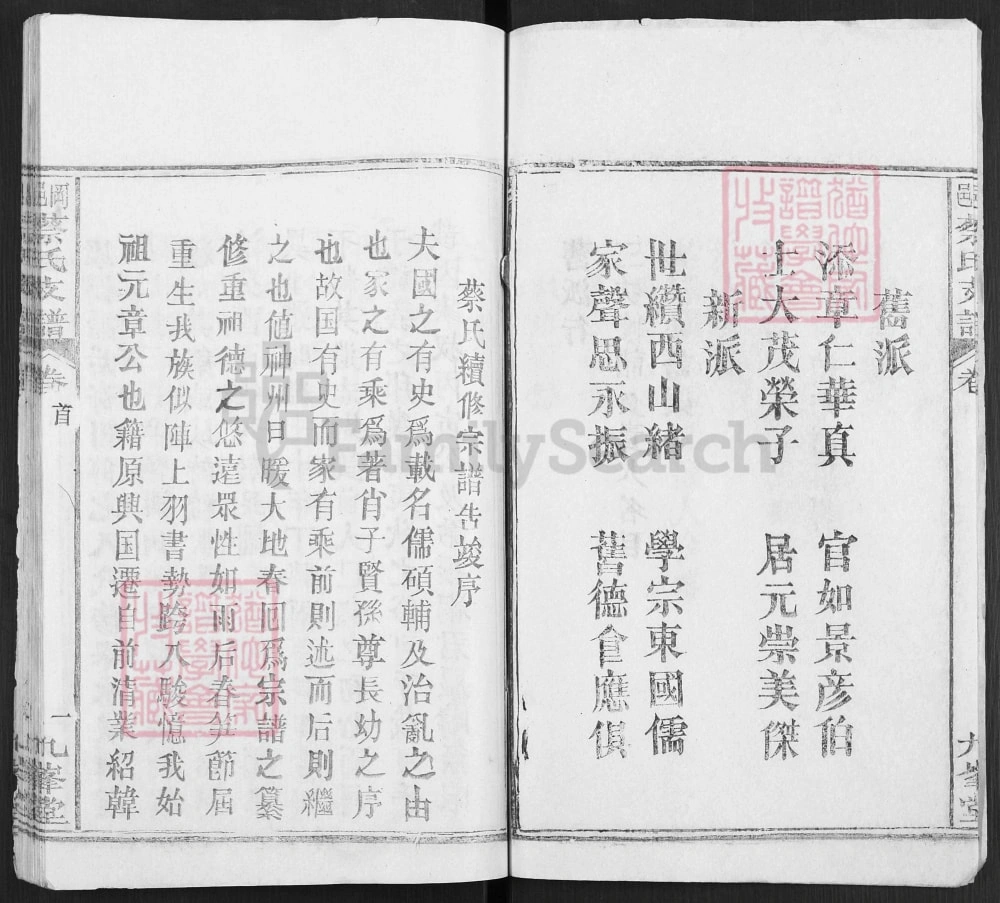 舊派
添章仁華真 官如景彦伯
士大茂榮子 居元崇美傑
新派
世纘西山緒 學宗東國儒
家聲思永振 舊德會應俱
九峯堂
岡邑蔡氏支譜 卷首 一 九峯堂
蔡氏續修宗譜告竣序
夫國之有史爲載名儒碩輔及治亂之由
也家之有乘爲著肖子賢孫尊長幼之序
也故国有史而家有乘前則述而后則繼
之也値神州日暖大地春囘爲宗譜之纂
修重祖德之悠遠眾性如雨后春笋節届
重生我族似陣上羽書勢跨八駿憶我始
祖元章公也籍原興国遷自前清業紹韓
FamilySearch